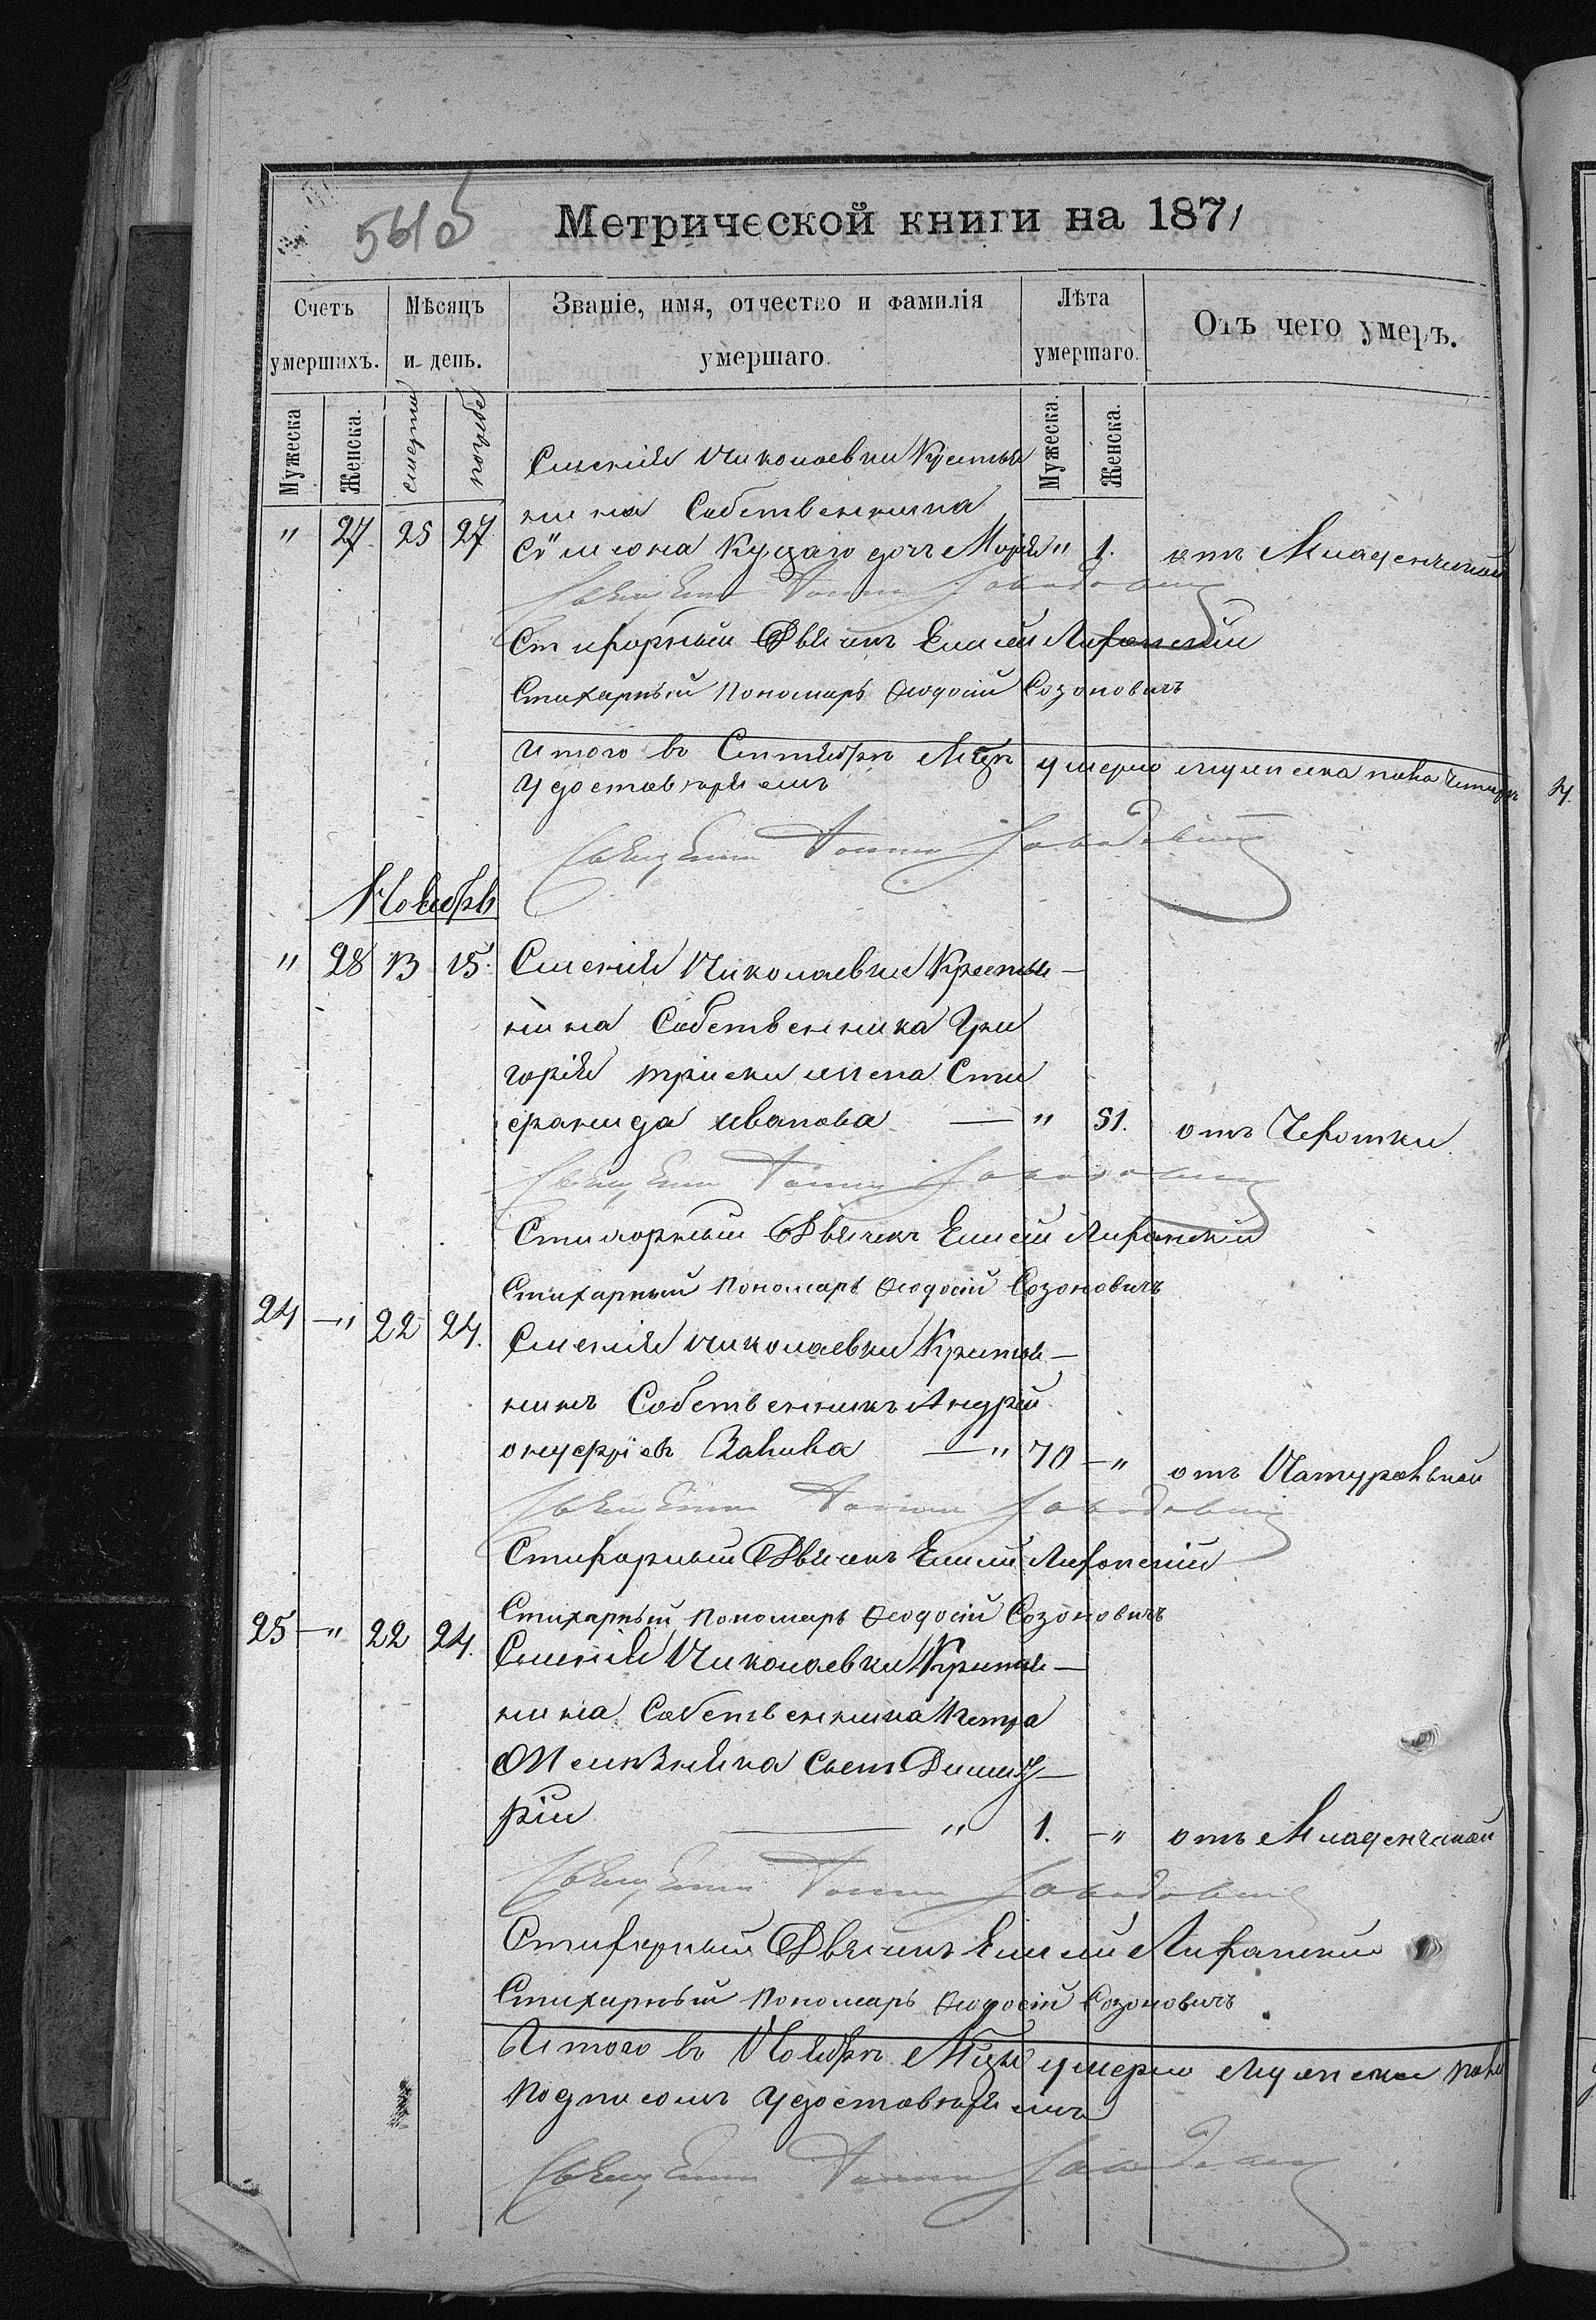 561об
Метрической книги на 1871
Счетъ умершихъ. Мѣсяцъ и день. Званіе, имя, отчество и фамилія умершаго. Лѣта умершаго. Отъ чего умеръ.
Мужеска Женска. смерти погребе Мужеска. Женска.
Николаевки Крестья
нина Собственника
" 27. 25 27. Симеона Куцаго дочь Марія " 1. отъ Младенческой
Священникъ Іоаннъ
Стихарный Дьячекъ Елисей
Стихарный Пономарь Ѳеодосій Созоновичъ
Итого въ Сентябрѣ Мцѣ умерло мужеска пола Четыре
Удостовѣряемъ
Священникъ Іоаннъ
Ноябрь
" 28 13 15. Николаевки Крестья-
нина Собственника Гри
горія жена Сте
фанида Иванова — " 51. отъ Чехотки
Священникъ Іоаннъ
Стихарный Дьячекъ Елисей
Стихарный Пономарь Ѳеодосій Созоновичъ
24 —" 22 24. Николаевки Крестья-
нинъ Собственникъ Андрей
Онуфріевъ —" 70 —" отъ Натуральной
Священникъ Іоаннъ
Стихарный Дьячекъ Елисей
Стихарный Пономарь Ѳеодосій Созоновичъ
25 —" 22 24. Николаевки Крестья-
нина Собственника Петра
сынъ Димит-
рій — " 1. —" отъ Младенческой
Священникъ Іоаннъ
Стихарный Дьячекъ Елисей
Стихарный Пономарь Ѳеодосій Созоновичъ
Итого въ Ноябрѣ Мцѣ умерло мужеска пола
подписомъ удостовѣряемъ
Священникъ Іоаннъ